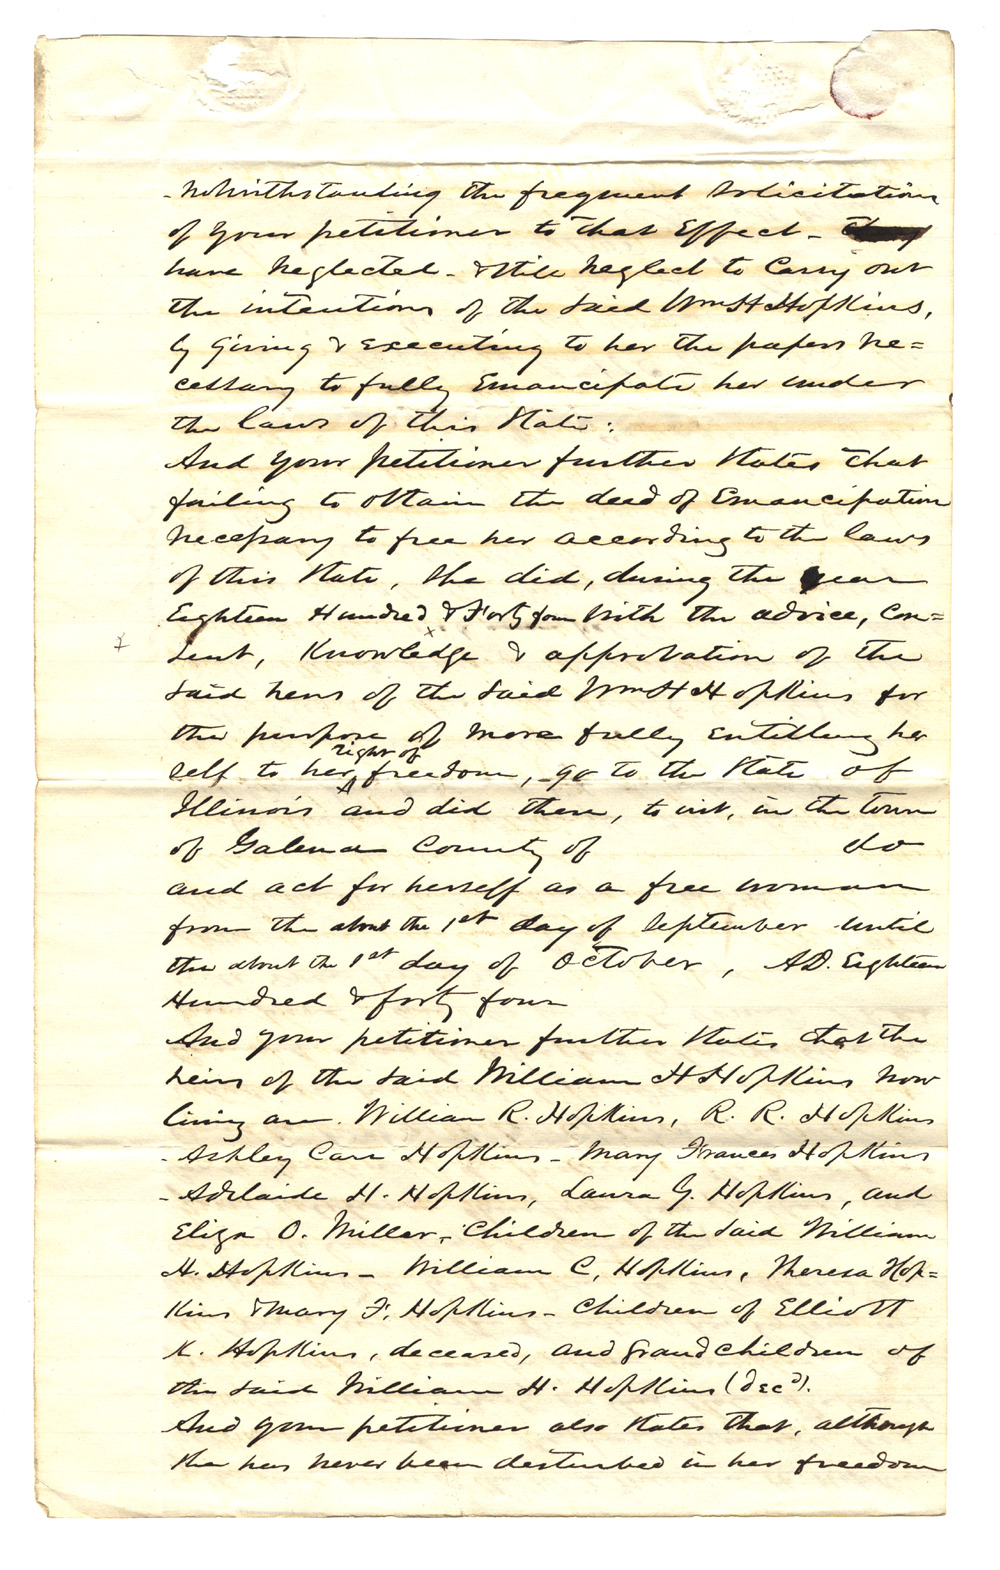 - Notwithstanding the frequent solicitations
of your petitioner to that Effect -
have neglected - & still neglect to Carry out
the intentions of the said Wm H Hopkins,
by Giving & executing to her the papers ne=
cessary to fully Emancipate her under
the laws of this State:
And your petitioner further states that
failing to obtain the deed of Emancipation
necessary to free her according to the laws
of this State, she did, during the year
Eighteen Hundred & Forty four with the advice, Con=
sent, Knowledge & approbation of the
said heirs of the said Wm H Hopkins for
the purpose of more fully entitling her
self to her right of freedom, - go to the State of
Illinois and did there, to wit, in the town
of Galena County of do
and act for herself as a free woman
from the about the 1st day of September until
the about the 1st day of October, AD. Eighteen
Hundred & forty four
And your petitioner further states that the
heirs of the said William H Hopkins now
living are William R. Hopkins, R. R. Hopkins
- Ashley Carr Hopkins - Mary Frances Hopkins
- Adelaide H. Hopkins, Laura G. Hopkins, and
Eliza O. Miller, - Children of the said William
H. Hopkins - William C. Hopkins, Theresa Hop=
kins & Mary F. Hopkins - Children of Elliott
K. Hopkins, deceased, and Grand children of
the said William H. Hopkins (decd).
And your petitioner also states that, although
she has never been desturbed in her freedom